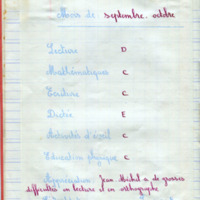 Mois de septembre. octobre
Lecture D
Mathématiques C
Ecriture C
Dictée E
Activités d'éveil C
Education physique C
Appréciation : Jean Michel a de grosses
difficultés en lecture et en orthographe